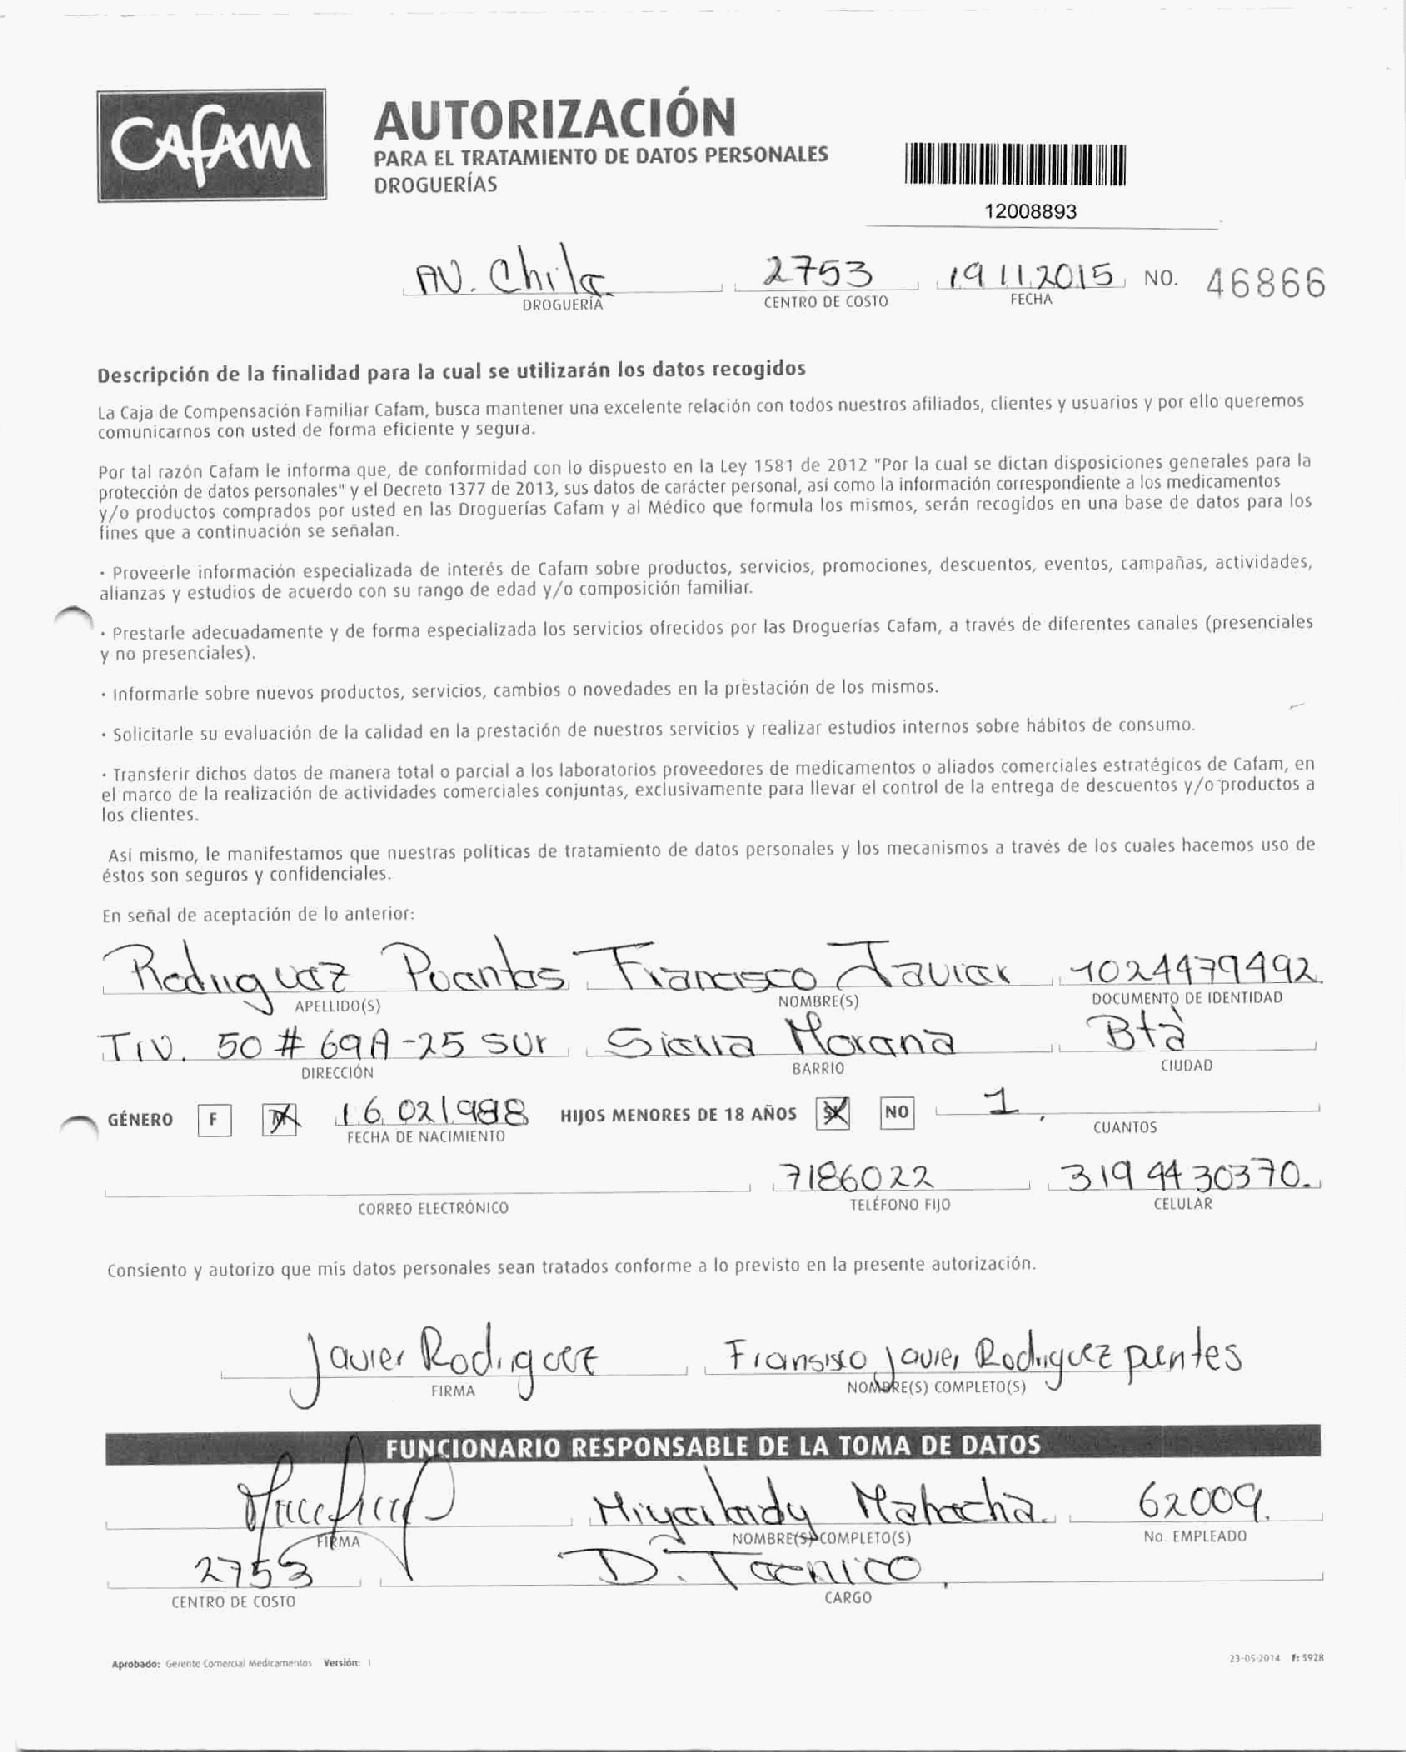 Cafam
AUTORIZACIÓN
PARA EL TRATAMIENTO DE DATOS PERSONALES
DROGUERÍAS
12008893
AV. Chile 2753 19 11 2015 NO. 46866
DROGUERÍA CENTRO DE COSTO FECHA
Descripción de la finalidad para la cual se utilizarán los datos recogidos
La Caja de Compensación Familiar Cafam, busca mantener una excelente relación con todos nuestros afiliados, clientes y usuarios y por ello queremos
comunicarnos con usted de forma eficiente y segura.
Por tal razón Cafam le informa que, de conformidad con lo dispuesto en la Ley 1581 de 2012 "Por la cual se dictan disposiciones generales para la
protección de datos personales" y el Decreto 1377 de 2013, sus datos de carácter personal, así como la información correspondiente a los medicamentos
y/o productos comprados por usted en las Droguerías Cafam y al Médico que formula los mismos, serán recogidos en una base de datos para los
fines que a continuación se señalan.
· Proveerle información especializada de interés de Cafam sobre productos, servicios, promociones, descuentos, eventos, campañas, actividades,
alianzas y estudios de acuerdo con su rango de edad y/o composición familiar.
· Prestarle adecuadamente y de forma especializada los servicios ofrecidos por las Droguerías Cafam, a través de diferentes canales (presenciales
y no presenciales).
· Informarle sobre nuevos productos, servicios, cambios o novedades en la prestación de los mismos.
· Solicitarle su evaluación de la calidad en la prestación de nuestros servicios y realizar estudios internos sobre hábitos de consumo.
· Transferir dichos datos de manera total o parcial a los laboratorios proveedores de medicamentos o aliados comerciales estratégicos de Cafam, en
el marco de la realización de actividades comerciales conjuntas, exclusivamente para llevar el control de la entrega de descuentos y/o productos a
los clientes.
Así mismo, le manifestamos que nuestras políticas de tratamiento de datos personales y los mecanismos a través de los cuales hacemos uso de
éstos son seguros y confidenciales.
En señal de aceptación de lo anterior:
Rodriguez Puentes Francisco Javier 1024479492
APELLIDO(S) NOMBRE(S) DOCUMENTO DE IDENTIDAD
Trv. 50 # 69A-25 sur Sierra Morena Bta
DIRECCIÓN BARRIO CIUDAD
GÉNERO F 16 02 1988 HIJOS MENORES DE 18 AÑOS NO 1
FECHA DE NACIMIENTO CUANTOS
7186022 3194430370
CORREO ELECTRÓNICO TELÉFONO FIJO CELULAR
Consiento y autorizo que mis datos personales sean tratados conforme a lo previsto en la presente autorización.
Javier Rodriguez Fransisco javier Rodriguez puentes
FIRMA NOMBRE(S) COMPLETO(S)
FUNCIONARIO RESPONSABLE DE LA TOMA DE DATOS
Mahecha 62009
FIRMA NOMBRE(S) COMPLETO(S) No. EMPLEADO
2753 D. Tecnico
CENTRO DE COSTO CARGO
Aprobado: Gerente Comercial Medicamentos Versión: 1 23-05-2014 F: 5928